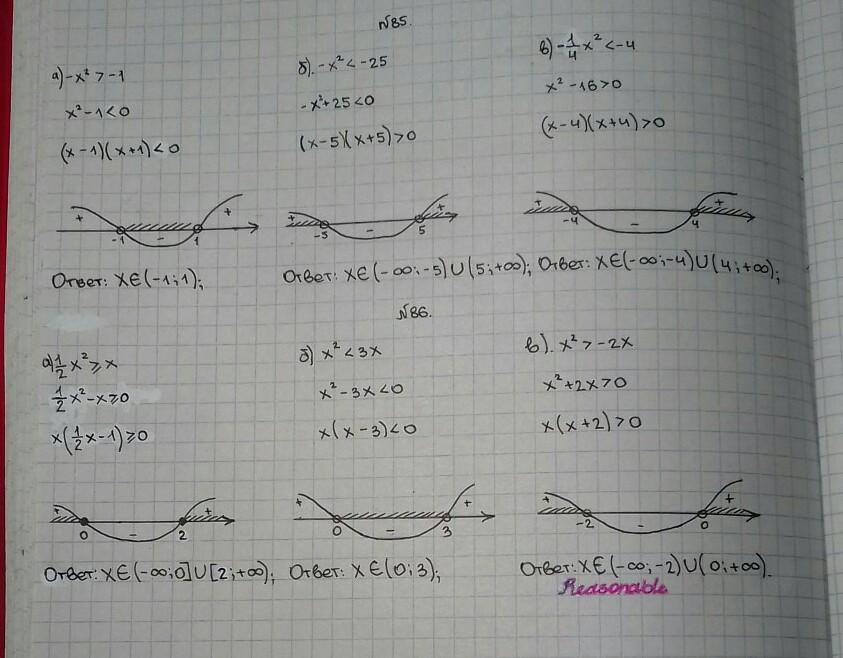 N85.
а) -x² > -1
x² - 1 < 0
(x - 1)(x + 1) < 0
+ - +
-1 1
Ответ: x∈(-1; 1);
б). -x² < -25
-x² + 25 < 0
(x - 5)(x + 5) > 0
+ - +
-5 5
Ответ: x∈(-∞; -5)∪(5; +∞);
в) -1/4 x² < -4
x² - 16 > 0
(x - 4)(x + 4) > 0
+ - +
-4 4
Ответ: x∈(-∞; -4)∪(4; +∞);
N86.
а) 1/2 x² ⩾ x
1/2 x² - x ⩾ 0
x(1/2 x - 1) ⩾ 0
+ - +
0 2
Ответ: x∈(-∞; 0]∪[2; +∞);
б) x² < 3x
x² - 3x < 0
x(x - 3) < 0
+ - +
0 3
Ответ: x∈(0; 3);
в). x² > -2x
x² + 2x > 0
x(x + 2) > 0
+ - +
-2 0
Ответ: x∈(-∞; -2)∪(0; +∞).
Reasonable